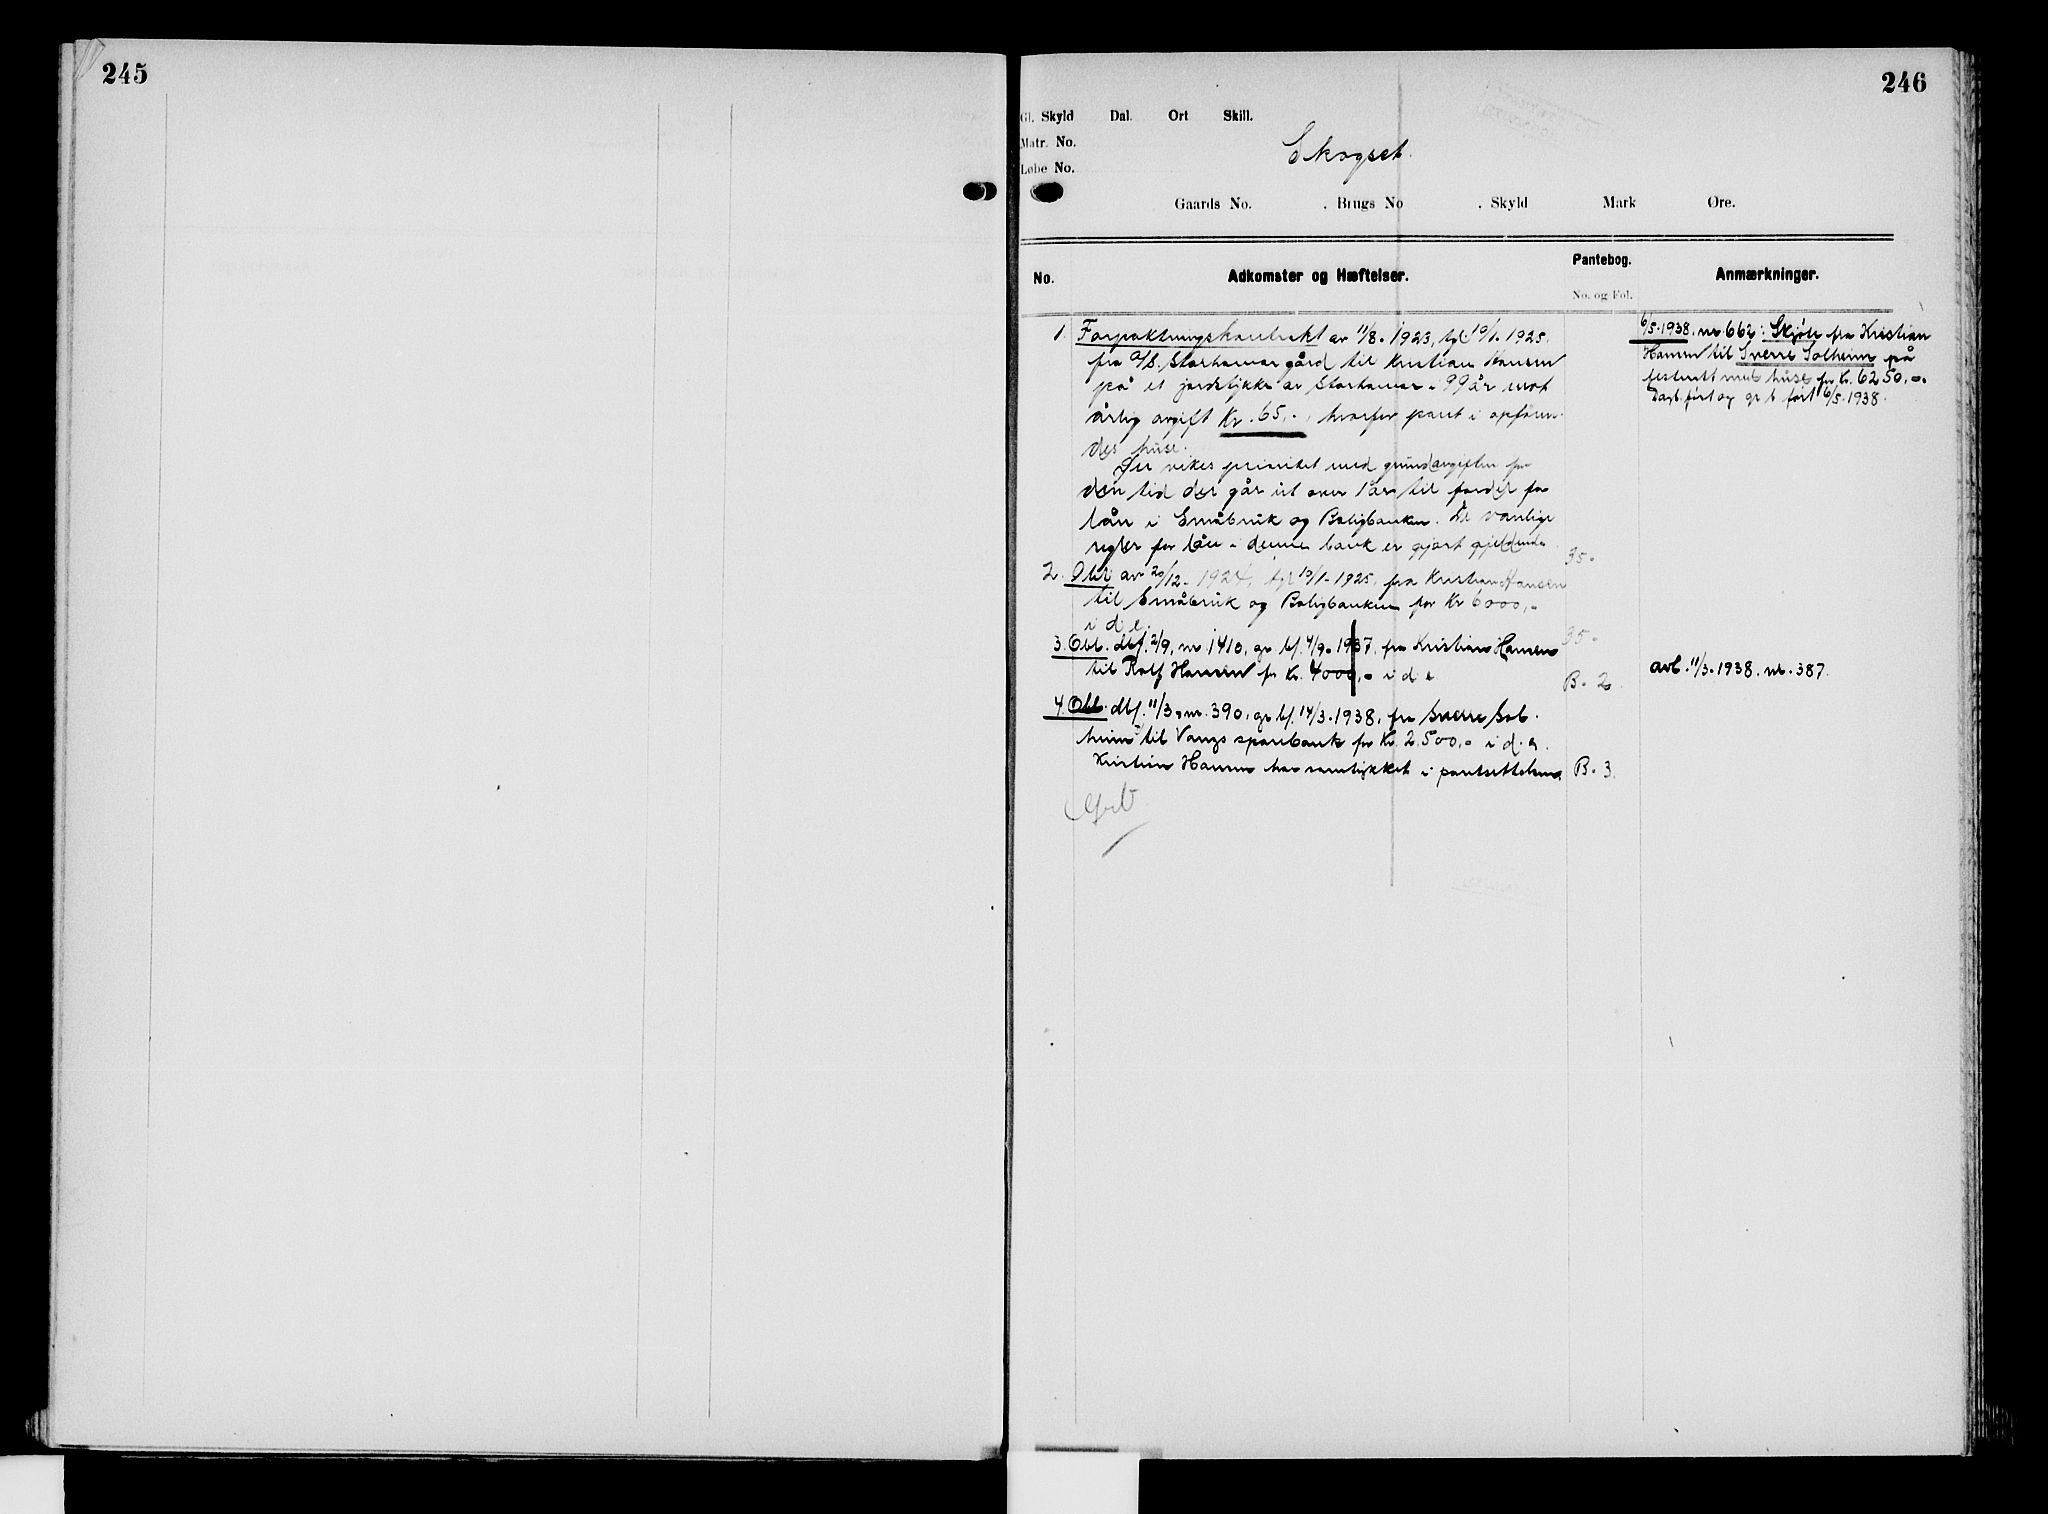 245
246
Gl. Skyld Dal. Ort Skill.
Matr. No.
Løbe No.
Skogset.
Gaards No. . Brugs No . Skyld Mark Øre.
No. Adkomster og Hæftelser. Pantebog. No. og Fol. Anmærkninger.
1. Forpaktningskontrakt av 11/8. 1923, tgl 10/1. 1925.
fra A/S. Storhamar gård til Kristian Hansen
på et jordstykke av Storhamar i 99 år mot
årlig avgift Kr. 65,-, hvorfor pant i opføren-
des huse.
Der vikes prioritet med grundavgiften for
den tid der går ut over 1 år til fordel for
lån i Småbruk og Boligbanken. De vanlige
regler for lån i denne bank er gjort gjeldende
35-
2. Obl av 20/12- 1924, tgl 10/1- 1925, fra Kristian Hansen
til Småbruk og Boligbanken for Kr 6000,-
i d e.
35-
3. Obl. dbf. 2/9, nr. 1410, gr bf. 4/9- 1937, fra Kristian Hansen
til Rolf Hansen for Kr. 4000,- i d e
B. 2.
4. Obl. dbf. 11/3, nr. 390, gr bf. 14/3. 1938, fra Sverre Sol-
heim til Vangs sparebank for Kr. 2.500,- i d. e.
Kristian Hansen har samtykket i pantsettelsen.
B. 3.
6/5. 1938. nr 662: Skjøte fra Kristian
Hansen til Sverre Solheim på
festerett med huse for Kr. 6250,-.
Dagb. ført og gr b ført 6/5. 1938.
avl. 11/3. 1938. nr. 387.